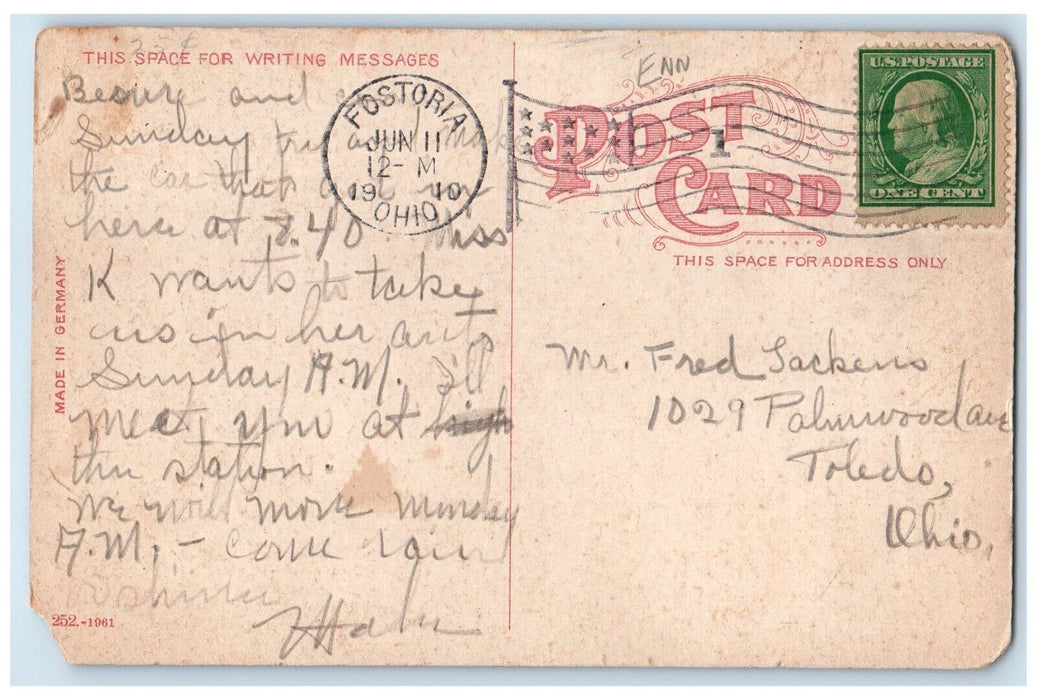 35¢
THIS SPACE FOR WRITING MESSAGES
Besure and
Sunday try and make
the car that get in
here at 7.40. Miss
K wants to take
us in her auto
Sunday A.M. I'll
meet you at
the station.
We will Monday
A.M. - come rain
or shine
MADE IN GERMANY
252.-1961
FOSTORIA
JUN 11
12-M
1910
OHIO
ENN
POST
CARD
1
U.S. POSTAGE
ONE CENT
THIS SPACE FOR ADDRESS ONLY
Mr. Fred
1029 Palmwood ave
Toledo,
Ohio,